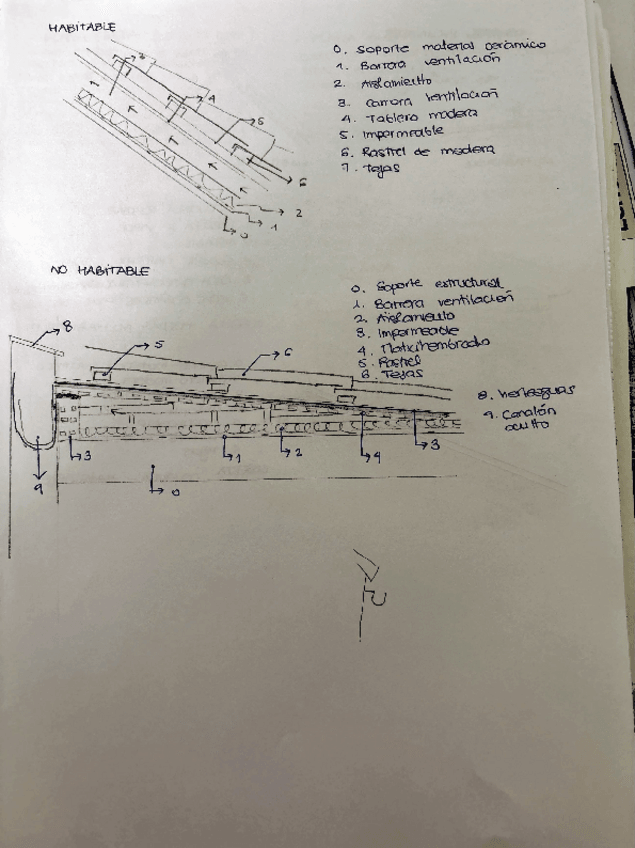 HABITABLE
0. Soporte material cerámico
1. Barrera ventilación
2. Aislamiento
3. Camara ventilación
4. Tablero madera
5. Impermeable
6. Rastrel de madera
7. Tejas
3
4
5
6
2
1
0
NO HABITABLE
0. Soporte estructural
1. Barrera ventilación
2. Aislamiento
3. Impermeable
4. Machihembrado
5. Rastrel
6. Tejas
8. Vierteaguas
9. Canalón
oculto
8
5
6
3
1
2
4
3
9
0